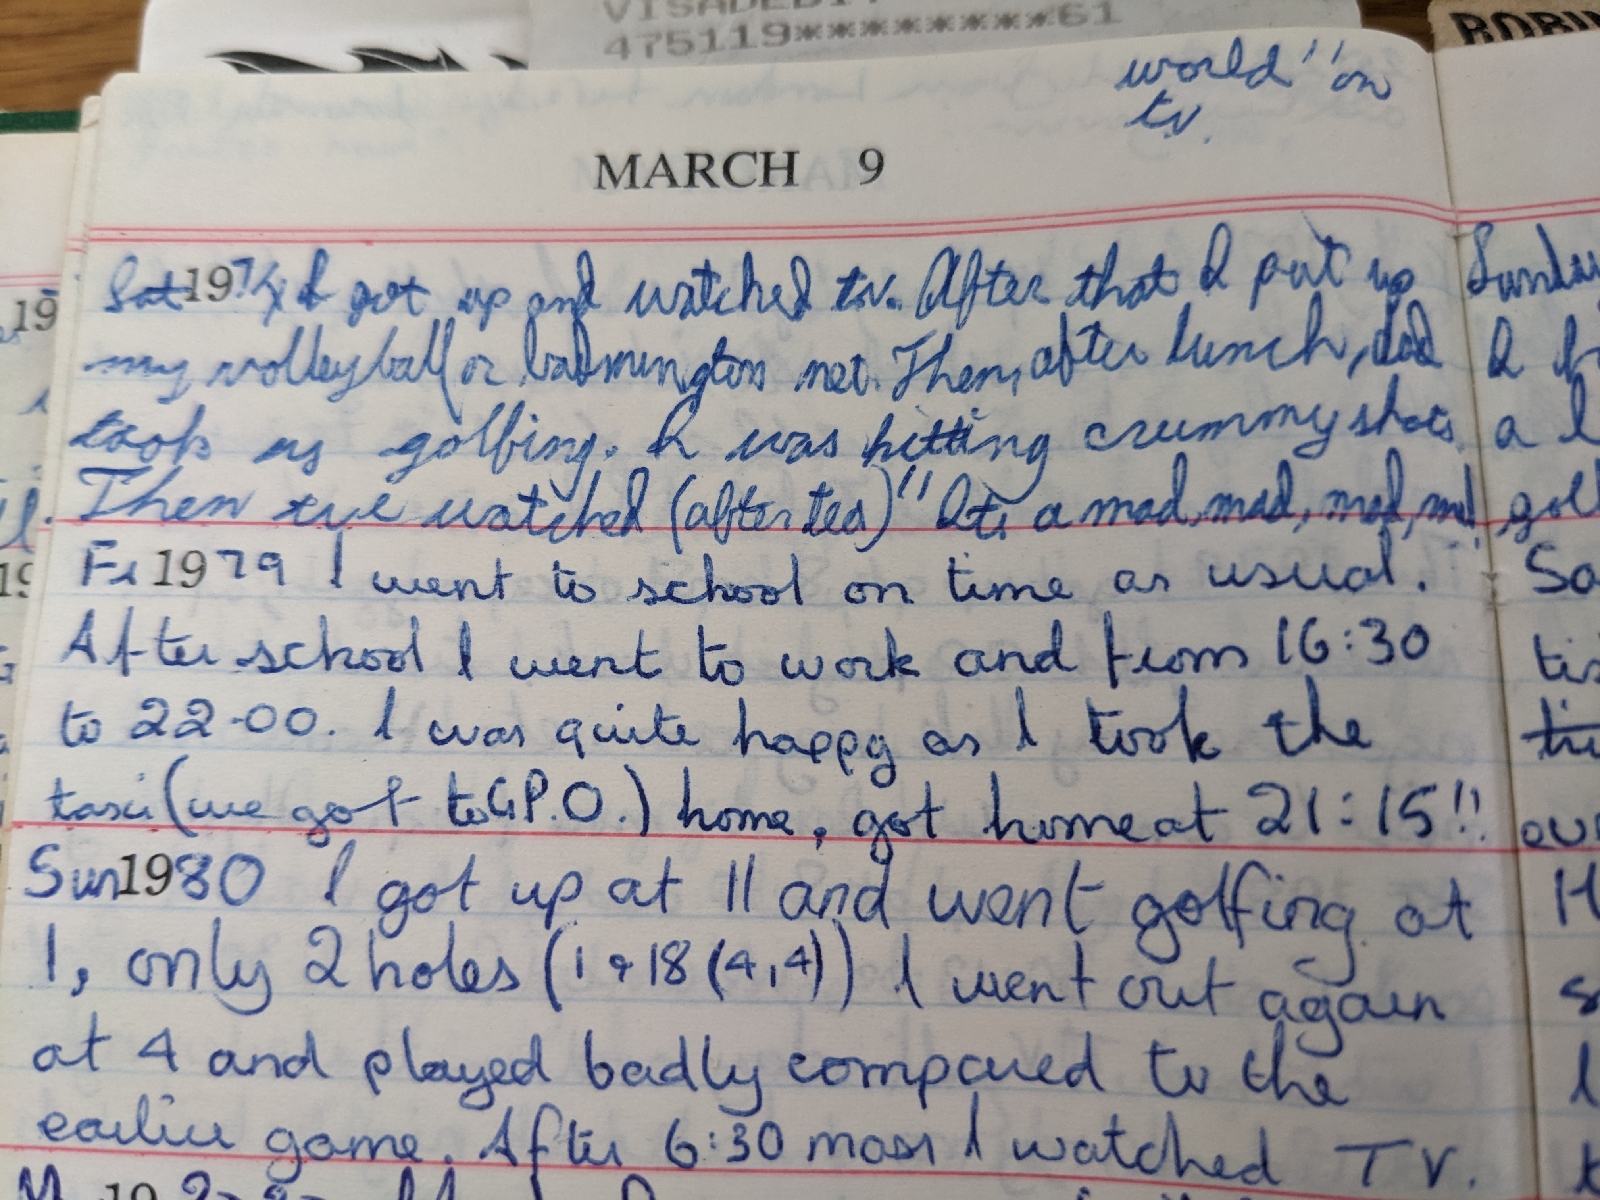 VISADEBIT
475119*********61
world" on
tv.
MARCH 9
Sat 1974 I got up and watched tv. After that I put up
my volleyball or badmington net. Then, after lunch, dad
took us golfing. I was hitting crummy shots.
Then we watched (after tea) "Its a mad, mad, mad, mad
Fri 1979 I went to school on time as usual.
After school I went to work and from 16:30
to 22.00. I was quite happy as I took the
taxi (we got to G.P.O.) home, got home at 21:15!!
Sun 1980 I got up at 11 and went golfing at
1, only 2 holes (1 & 18 (4,4)) I went out again
at 4 and played badly compared to the
earlier game. After 6:30 mass I watched TV.
Sunday
I
a
golf
So
H